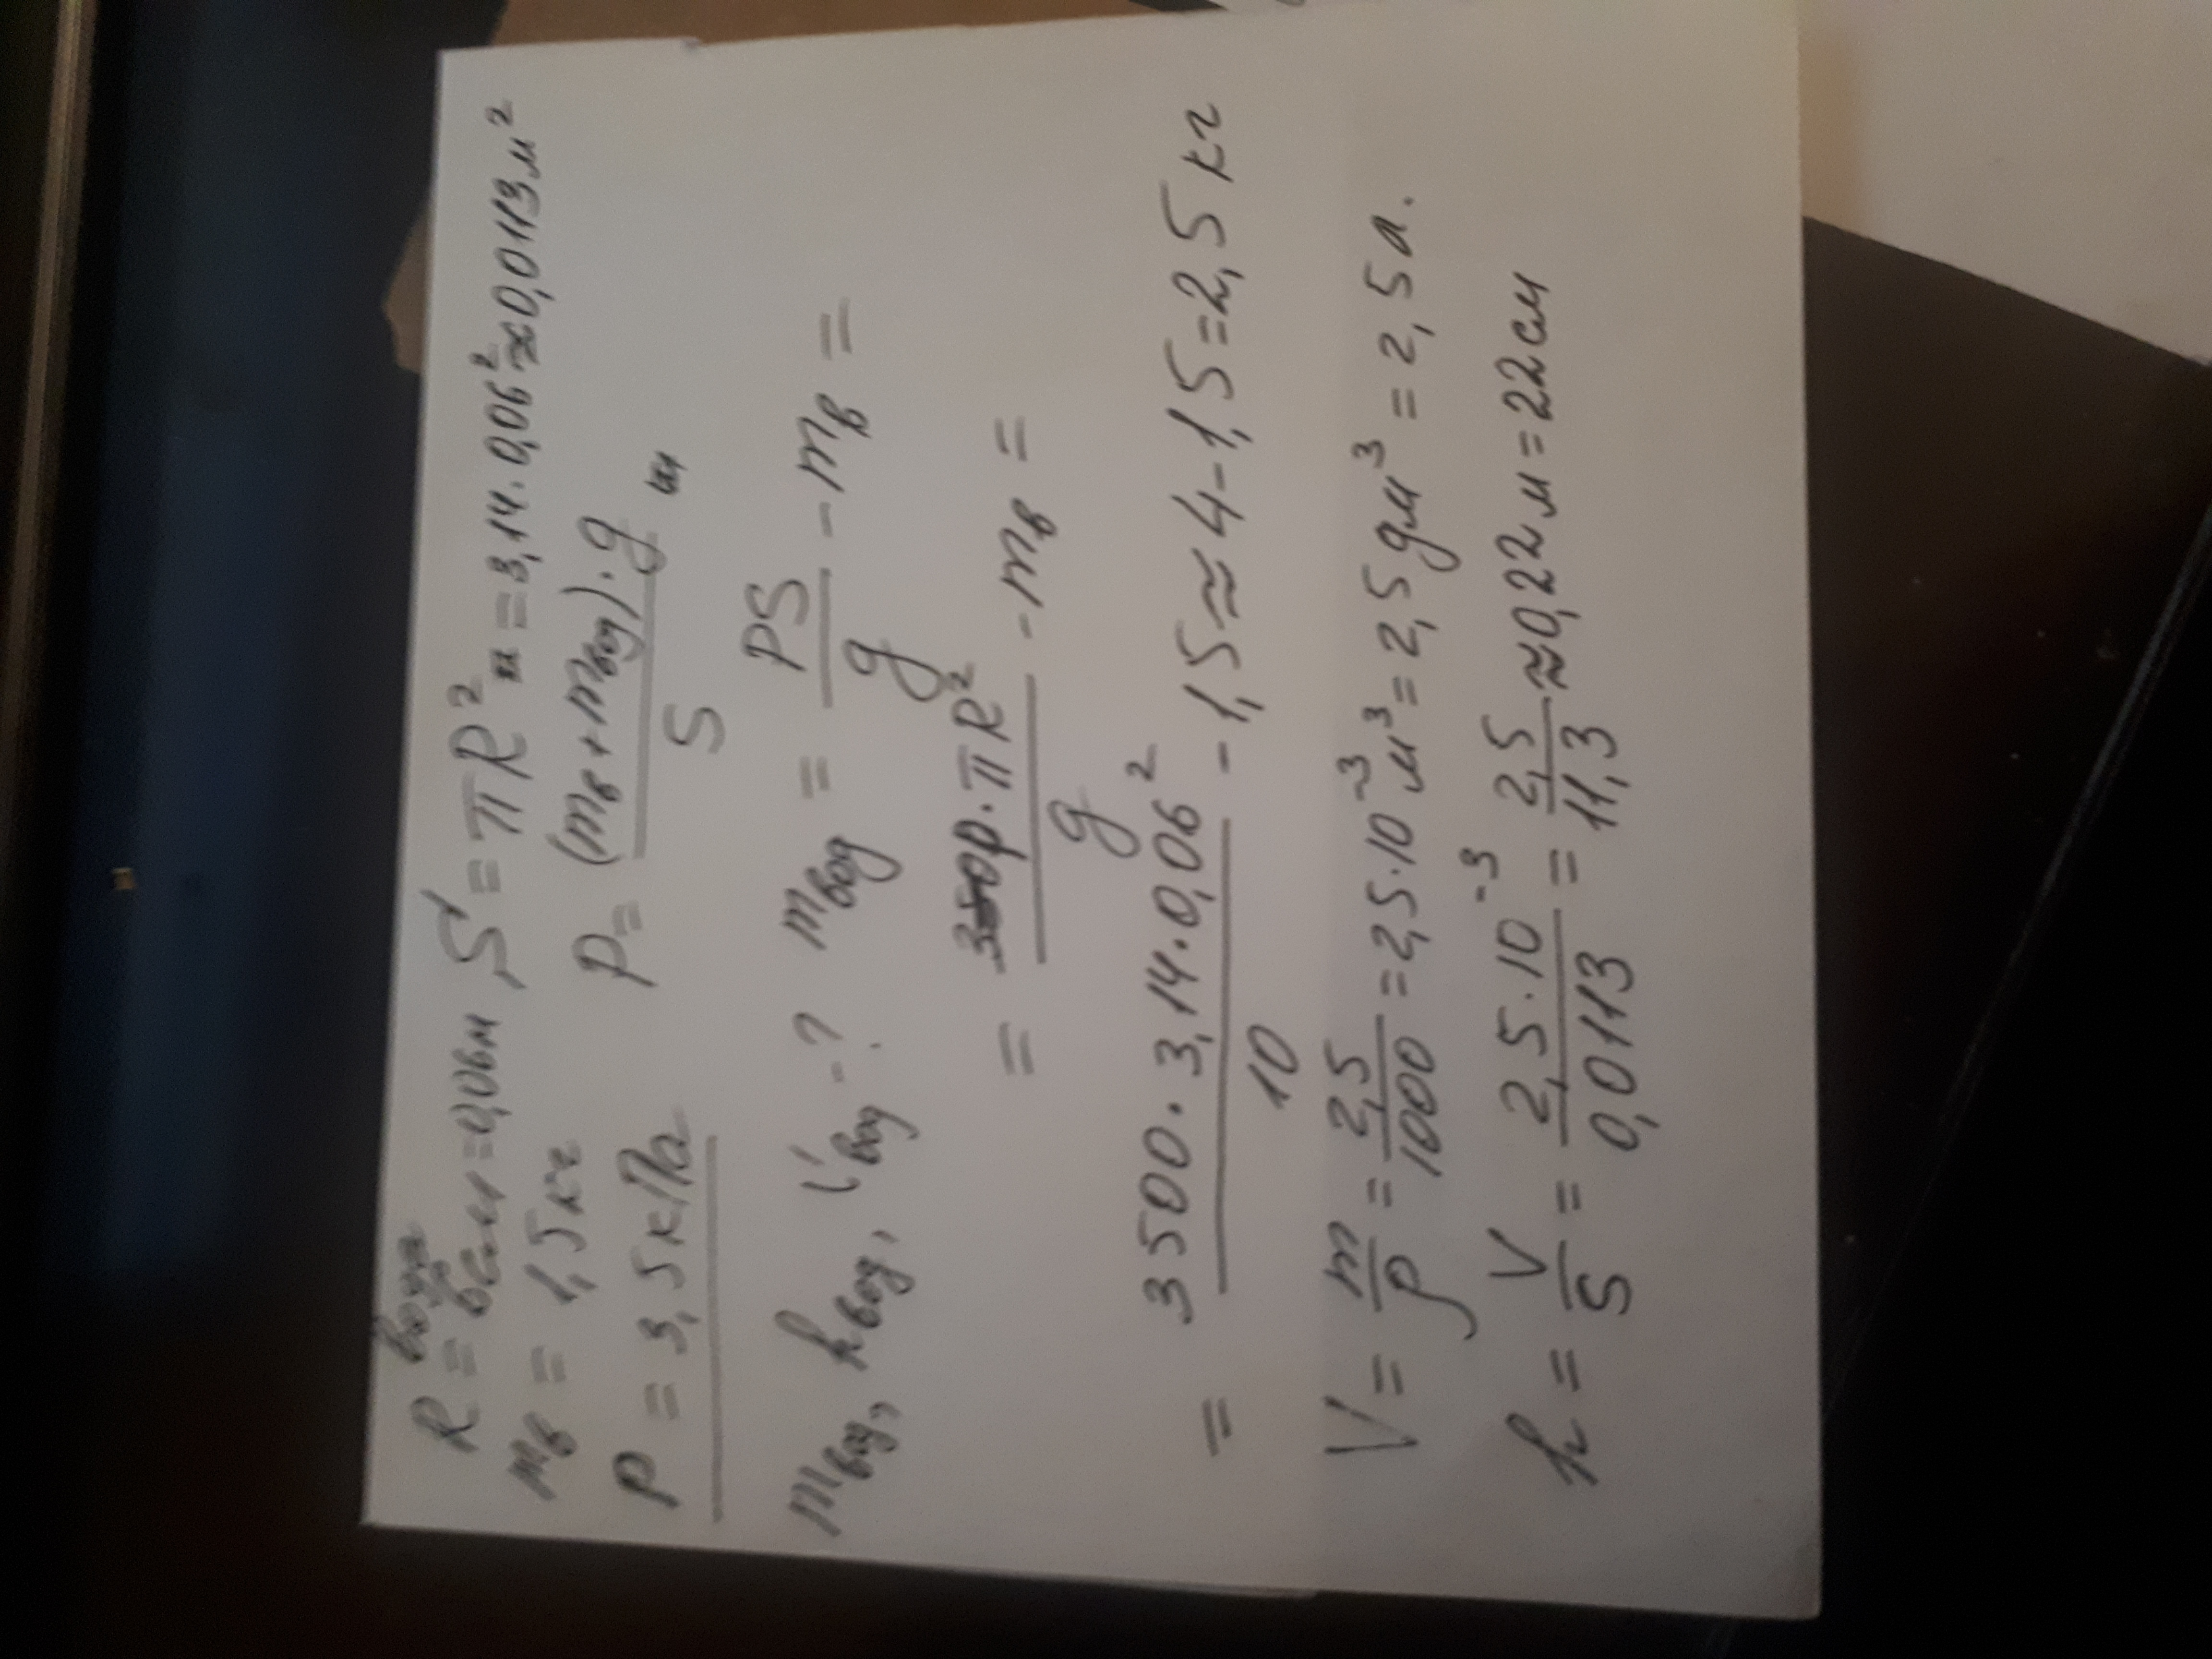 R = 6см = 0,06м S = πR² = 3,14·0,06² ≈ 0,0113 м²
mв = 1,5 кг P = (mв + mвод)·g / S
P = 3,5 кПа
mвод, hвод, Vвод - ? mвод = PS / g - mв =
= P·πR² / g - mв =
= 3500·3,14·0,06² / 10 - 1,5 ≈ 4 - 1,5 = 2,5 кг
V = m / ρ = 2,5 / 1000 = 2,5·10⁻³ м³ = 2,5 дм³ = 2,5 л.
h = V / S = 2,5·10⁻³ / 0,0113 = 2,5 / 11,3 ≈ 0,22 м = 22 см